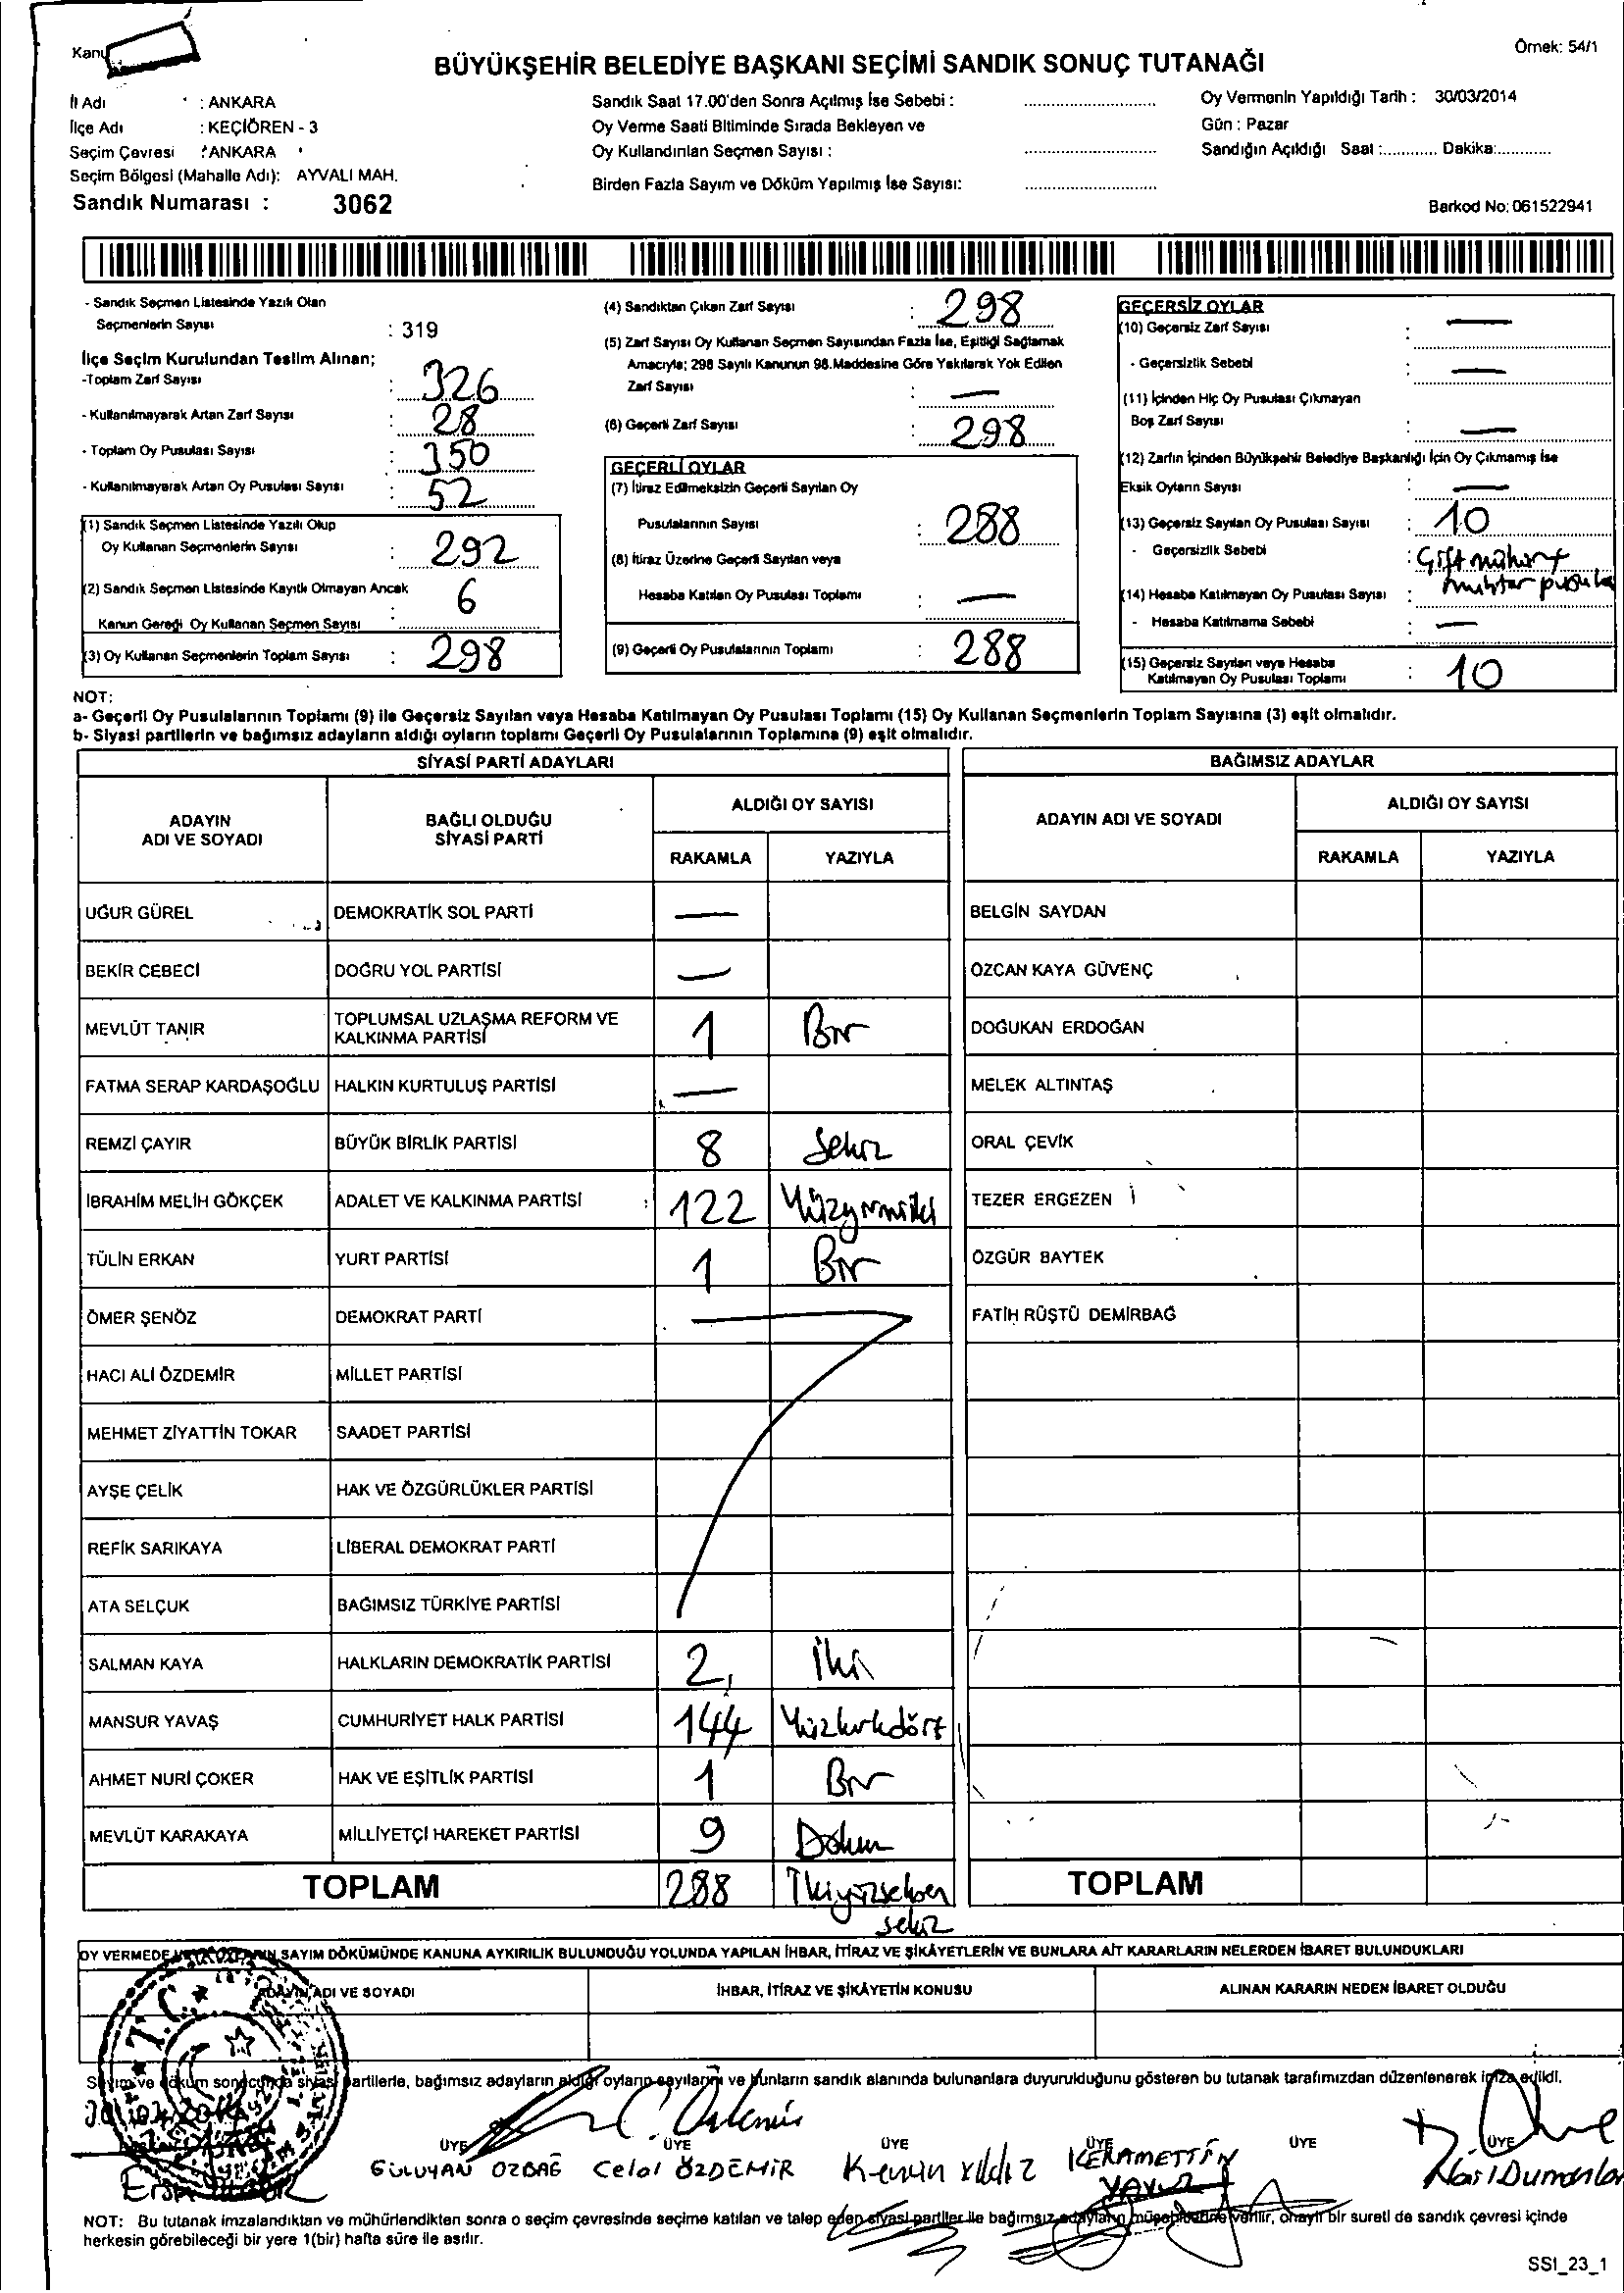 Örnek: 54/1
BÜYÜKŞEHİR BELEDİYE BAŞKANI SEÇİMİ SANDIK SONUÇ TUTANAĞI
İl Adı : ANKARA
İlçe Adı : KEÇİÖREN - 3
Seçim Çevresi : ANKARA
Seçim Bölgesi (Mahalle Adı): AYVALI MAH.
Sandık Numarası : 3062
Sandık Saat 17.00'den Sonra Açılmış İse Sebebi :
Oy Verme Saati Bitiminde Sırada Bekleyen ve
Oy Kullandırılan Seçmen Sayısı :
Birden Fazla Sayım ve Döküm Yapılmış İse Sayısı:
Oy Vermenin Yapıldığı Tarih : 30/03/2014
Gün : Pazar
Sandığın Açıldığı Saat :............ Dakika:............
Barkod No: 061522941
- Sandık Seçmen Listesinde Yazılı Olan
Seçmenlerin Sayısı : 319
İlçe Seçim Kurulundan Teslim Alınan;
-Toplam Zarf Sayısı : 326
- Kullanılmayarak Artan Zarf Sayısı : 28
- Toplam Oy Pusulası Sayısı : 350
- Kullanılmayarak Artan Oy Pusulası Sayısı : 52
(1) Sandık Seçmen Listesinde Yazılı Olup
Oy Kullanan Seçmenlerin Sayısı : 292
(2) Sandık Seçmen Listesinde Kayıtlı Olmayan Ancak
Kanun Gereği Oy Kullanan Seçmen Sayısı : 6
(3) Oy Kullanan Seçmenlerin Toplam Sayısı : 298
(4) Sandıktan Çıkan Zarf Sayısı : 298
(5) Zarf Sayısı Oy Kullanan Seçmen Sayısından Fazla İse, Eşitliği Sağlamak
Amacıyla; 298 Sayılı Kanunun 98.Maddesine Göre Yakılarak Yok Edilen
Zarf Sayısı : —
(6) Geçerli Zarf Sayısı : 298
GEÇERLİ OYLAR
(7) İtiraz Edilmeksizin Geçerli Sayılan Oy
Pusulalarının Sayısı : 288
(8) İtiraz Üzerine Geçerli Sayılan veya
Hesaba Katılan Oy Pusulası Toplamı : —
(9) Geçerli Oy Pusulalarının Toplamı : 288
GEÇERSİZ OYLAR
(10) Geçersiz Zarf Sayısı : —
- Geçersizlik Sebebi : —
(11) İçinden Hiç Oy Pusulası Çıkmayan
Boş Zarf Sayısı : —
(12) Zarfın İçinden Büyükşehir Belediye Başkanlığı İçin Oy Çıkmamış İse
Eksik Oyların Sayısı : —
(13) Geçersiz Sayılan Oy Pusulası Sayısı : 10
- Geçersizlik Sebebi : Çift mühür
muhtar pusula
(14) Hesaba Katılmayan Oy Pusulası Sayısı :
- Hesaba Katılmama Sebebi : —
(15) Geçersiz Sayılan veya Hesaba
Katılmayan Oy Pusulası Toplamı : 10
NOT:
a- Geçerli Oy Pusulalarının Toplamı (9) ile Geçersiz Sayılan veya Hesaba Katılmayan Oy Pusulası Toplamı (15) Oy Kullanan Seçmenlerin Toplam Sayısına (3) eşit olmalıdır.
b- Siyasi partilerin ve bağımsız adayların aldığı oyların toplamı Geçerli Oy Pusulalarının Toplamına (9) eşit olmalıdır.
SİYASİ PARTİ ADAYLARI
ADAYIN ADI VE SOYADI BAĞLI OLDUĞU SİYASİ PARTİ ALDIĞI OY SAYISI
RAKAMLA YAZIYLA
UĞUR GÜREL DEMOKRATİK SOL PARTİ —
BEKİR CEBECİ DOĞRU YOL PARTİSİ —
MEVLÜT TANIR TOPLUMSAL UZLAŞMA REFORM VE KALKINMA PARTİSİ 1 Bir
FATMA SERAP KARDAŞOĞLU HALKIN KURTULUŞ PARTİSİ —
REMZİ ÇAYIR BÜYÜK BİRLİK PARTİSİ 8 Sekiz
İBRAHİM MELİH GÖKÇEK ADALET VE KALKINMA PARTİSİ 122 Yüzyirmiiki
TÜLİN ERKAN YURT PARTİSİ 1 Bir
ÖMER ŞENÖZ DEMOKRAT PARTİ
HACI ALİ ÖZDEMİR MİLLET PARTİSİ
MEHMET ZİYATTİN TOKAR SAADET PARTİSİ
AYŞE ÇELİK HAK VE ÖZGÜRLÜKLER PARTİSİ
REFİK SARIKAYA LİBERAL DEMOKRAT PARTİ
ATA SELÇUK BAĞIMSIZ TÜRKİYE PARTİSİ
SALMAN KAYA HALKLARIN DEMOKRATİK PARTİSİ 2 İki
MANSUR YAVAŞ CUMHURİYET HALK PARTİSİ 144 Yüzkırkdört
AHMET NURİ ÇOKER HAK VE EŞİTLİK PARTİSİ 1 Bir
MEVLÜT KARAKAYA MİLLİYETÇİ HAREKET PARTİSİ 9 Dokuz
TOPLAM 288 İkiyüzseksen
sekiz
BAĞIMSIZ ADAYLAR
ADAYIN ADI VE SOYADI ALDIĞI OY SAYISI
RAKAMLA YAZIYLA
BELGİN SAYDAN
ÖZCAN KAYA GÜVENÇ
DOĞUKAN ERDOĞAN
MELEK ALTINTAŞ
ORAL ÇEVİK
TEZER ERGEZEN
ÖZGÜR BAYTEK
FATİH RÜŞTÜ DEMİRBAĞ
TOPLAM
OY VERMEDE SAYIM DÖKÜMÜNDE KANUNA AYKIRILIK BULUNDUĞU YOLUNDA YAPILAN İHBAR, İTİRAZ VE ŞİKÂYETLERİN VE BUNLARA AİT KARARLARIN NELERDEN İBARET BULUNDUKLARI
ADAYIN ADI VE SOYADI İHBAR, İTİRAZ VE ŞİKÂYETİN KONUSU ALINAN KARARIN NEDEN İBARET OLDUĞU
T.C.
Sayım ve döküm sonucunda siyasi partilerle, bağımsız adayların aldığı oyların sayılarını ve bunların sandık alanında bulunanlara duyurulduğunu gösteren bu tutanak tarafımızdan düzenlenerek imza edildi.
ÜYE ÜYE ÜYE ÜYE ÜYE ÜYE
GÜLUYAN OZBAĞ Celal ÖZDEMİR Kerim Yıldız KERAMETTİN
YAVUZ
NOT: Bu tutanak imzalandıktan ve mühürlendikten sonra o seçim çevresinde seçime katılan ve talep eden siyasi partiler ile bağımsız adayların müşahitlerine verilir, onaylı bir sureti de sandık çevresi içinde
herkesin görebileceği bir yere 1(bir) hafta süre ile asılır.
SSI_23_1